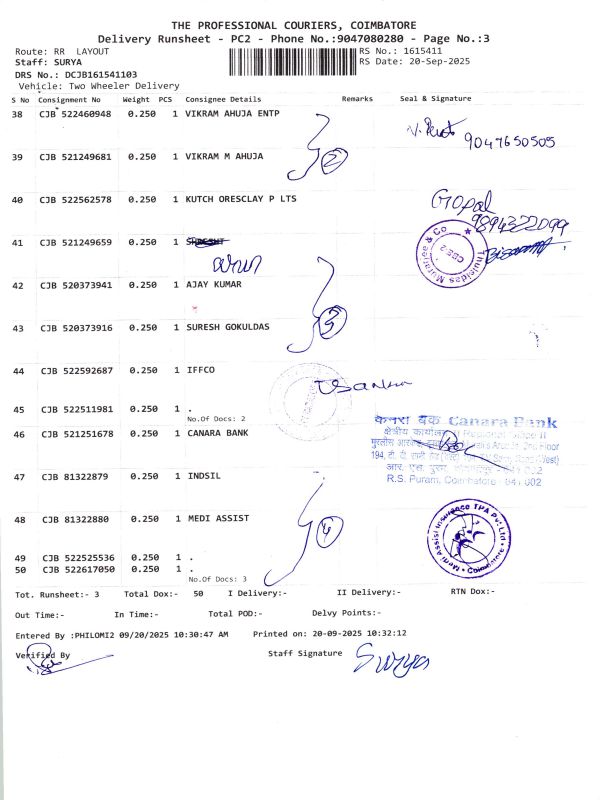 THE PROFESSIONAL COURIERS, COIMBATORE
Delivery Runsheet - PC2 - Phone No.:9047080280 - Page No.:3
Route: RR LAYOUT RS No.: 1615411
Staff: SURYA RS Date: 20-Sep-2025
DRS No.: DCJB161541103
Vehicle: Two Wheeler Delivery
S No Consignment No Weight PCS Consignee Details Remarks Seal & Signature
38 CJB 522460948 0.250 1 VIKRAM AHUJA ENTP
9047650505
39 CJB 521249681 0.250 1 VIKRAM M AHUJA 2
40 CJB 522562578 0.250 1 KUTCH ORESCLAY P LTS Gopal
9894322099
41 CJB 521249659 0.250 1
Thulsidas Morarjee & Co
CBE-2
arun
42 CJB 520373941 0.250 1 AJAY KUMAR
43 CJB 520373916 0.250 1 SURESH GOKULDAS 3
44 CJB 522592687 0.250 1 IFFCO
45 CJB 522511981 0.250 1 .
No.Of Docs: 2
केनरा बैंक Canara Bank
46 CJB 521251678 0.250 1 CANARA BANK
R.S. Puram, Coimbatore - 641 002
47 CJB 81322879 0.250 1 INDSIL
48 CJB 81322880 0.250 1 MEDI ASSIST 4
Medi Assist Insurance TPA Pvt Ltd
Coimbatore
49 CJB 522525536 0.250 1 .
50 CJB 522617050 0.250 1 .
No.Of Docs: 3
Tot. Runsheet:- 3 Total Dox:- 50 I Delivery:- II Delivery:- RTN Dox:-
Out Time:- In Time:- Total POD:- Delvy Points:-
Entered By :PHILOMI2 09/20/2025 10:30:47 AM Printed on: 20-09-2025 10:32:12
Verified By Staff Signature Surya